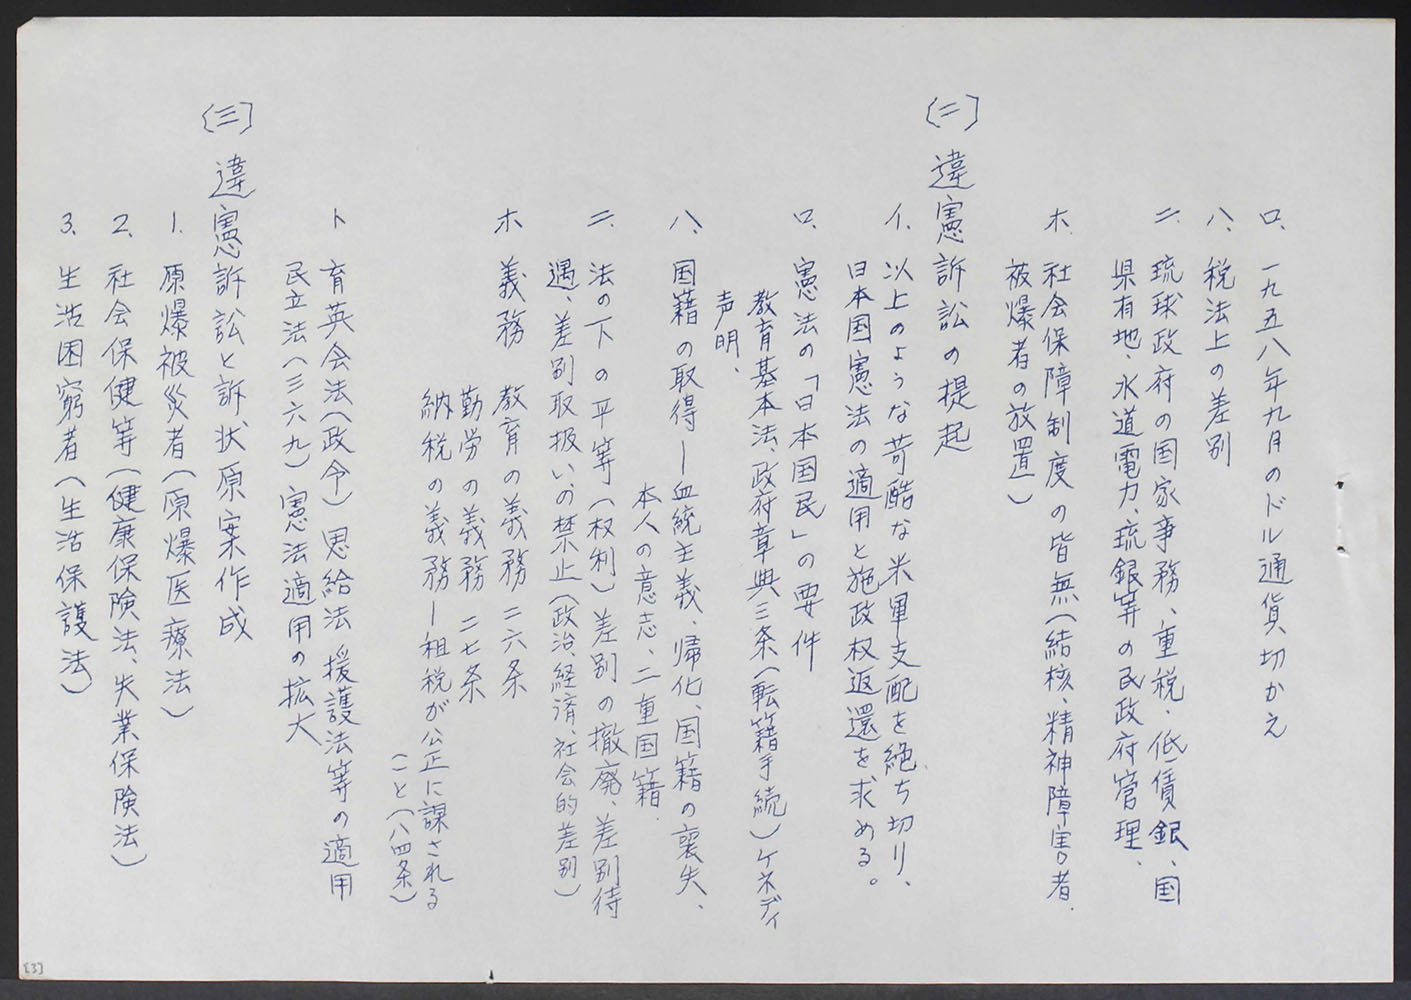 ロ、一九五八年九月のドル通貨切かえ
ハ、税法上の差別
ニ、琉球政府の国家事務、重税・低賃銀、国
県有地、水道電力、琉銀等の民政府管理、
ホ、社会保障制度の皆無(結核、精神障害者、
被爆者の放置)
〔二〕違憲訴訟の提起
イ、以上のような苛酷な米軍支配を絶ち切り、
日本国憲法の適用と施政权返還を求める。
ロ、憲法の「日本国民」の要件
教育基本法、政府章典三条(転籍手続)ケネディ
声明、
ハ、国籍の取得ー血統主義、帰化、国籍の喪失、
本人の意志、二重国籍、
ニ、法の下の平等(权利)差別の撤廃、差別待
遇、差別取扱いの禁止(政治、経済、社会的差別)
ホ 義務 教育の義務 二六条
勤労の義務 二七条
納税の義務ー租税が公正に課される
こと(八四条)
ト 育英会法(政令)恩給法 援護法等の適用
民立法(三六九)憲法適用の拡大
〔三〕違憲訴訟と訴状原案作成
1、原爆被災者(原爆医療法)
2、社会保健等(健康保険法、失業保険法)
3、生活困窮者(生活保護法)
[3]